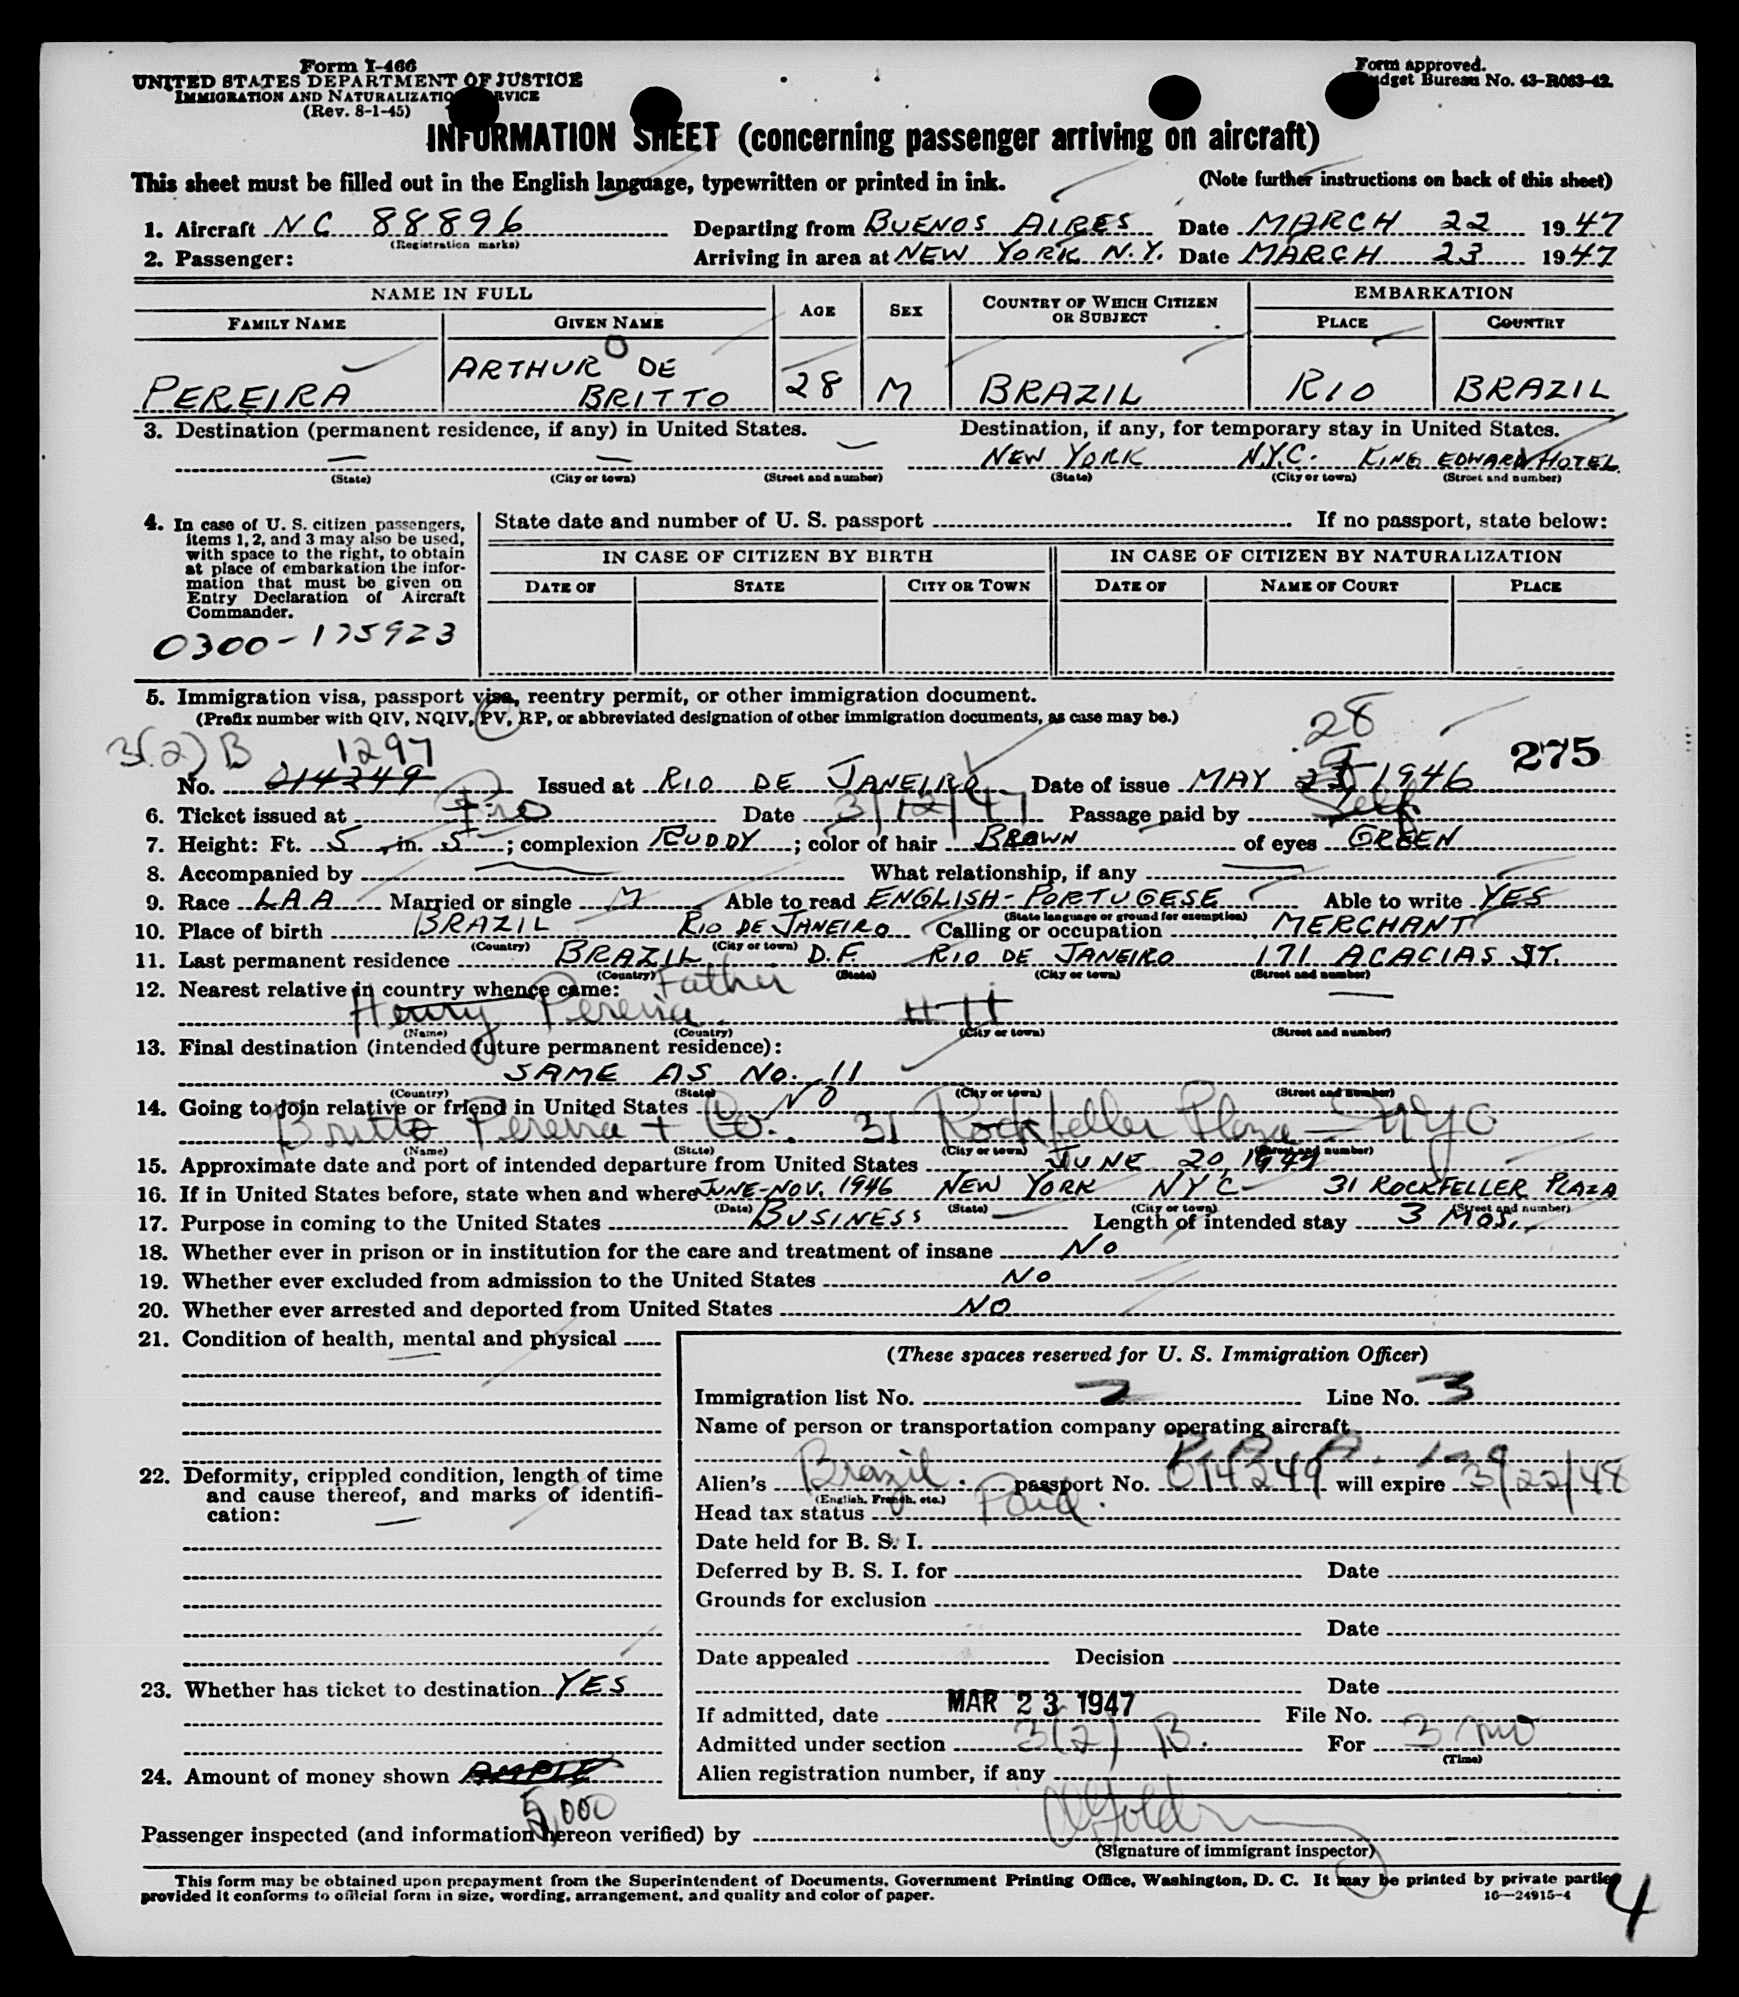 Form I-466
UNITED STATES DEPARTMENT OF JUSTICE
IMMIGRATION AND NATURALIZATION SERVICE
(Rev. 8-1-45)
Form approved.
Budget Bureau No. 43-R063-42.
INFORMATION SHEET (concerning passenger arriving on aircraft)
This sheet must be filled out in the English language, typewritten or printed in ink. (Note further instructions on back of this sheet)
1. Aircraft NC 88896 Departing from BUENOS AIRES Date MARCH 22 1947
(Registration marks)
2. Passenger: Arriving in area at NEW YORK N.Y. Date MARCH 23 1947
NAME IN FULL AGE SEX COUNTRY OF WHICH CITIZEN OR SUBJECT EMBARKATION
FAMILY NAME GIVEN NAME PLACE COUNTRY
PEREIRA ARTHUR O DE BRITTO 28 M BRAZIL RIO BRAZIL
3. Destination (permanent residence, if any) in United States. Destination, if any, for temporary stay in United States.
— — — NEW YORK N.Y.C. KING EDWARD HOTEL
(State) (City or town) (Street and number) (State) (City or town) (Street and number)
4. In case of U. S. citizen passengers, items 1, 2, and 3 may also be used, with space to the right, to obtain at place of embarkation the information that must be given on Entry Declaration of Aircraft Commander.
State date and number of U. S. passport If no passport, state below:
IN CASE OF CITIZEN BY BIRTH IN CASE OF CITIZEN BY NATURALIZATION
DATE OF STATE CITY OR TOWN DATE OF NAME OF COURT PLACE
0300-175923
5. Immigration visa, passport visa, reentry permit, or other immigration document.
(Prefix number with QIV, NQIV, PV, RP, or abbreviated designation of other immigration documents, as case may be.)
3(2) B 1297 28 275
No. 014249 Issued at RIO DE JANEIRO Date of issue MAY 1946
6. Ticket issued at Rio Date 3/12/47 Passage paid by Self
7. Height: Ft. 5, in. 5; complexion RUDDY; color of hair BROWN of eyes GREEN
8. Accompanied by — What relationship, if any —
9. Race LAA Married or single M Able to read ENGLISH-PORTUGESE Able to write YES
(State language or ground for exemption)
10. Place of birth BRAZIL RIO DE JANEIRO Calling or occupation MERCHANT
(Country) (City or town)
11. Last permanent residence BRAZIL D.F. RIO DE JANEIRO 171 ACACIAS ST.
(Country) (State) (City or town) (Street and number)
12. Nearest relative in country whence came: Father
Henry Pereira # 11 —
(Name) (Country) (City or town) (Street and number)
13. Final destination (intended future permanent residence):
SAME AS No. 11
(Country) (State) (City or town) (Street and number)
14. Going to join relative or friend in United States NO
Britto Pereira + Co. 31 Rockfeller Plaza — NYC
(Name) (State) (City or town) (Street and number)
15. Approximate date and port of intended departure from United States JUNE 20, 1947
16. If in United States before, state when and where JUNE-NOV. 1946 NEW YORK NYC 31 ROCKFELLER PLAZA
(Date) (State) (City or town) (Street and number)
17. Purpose in coming to the United States BUSINESS Length of intended stay 3 MOS.
18. Whether ever in prison or in institution for the care and treatment of insane No
19. Whether ever excluded from admission to the United States No
20. Whether ever arrested and deported from United States NO
21. Condition of health, mental and physical —
22. Deformity, crippled condition, length of time and cause thereof, and marks of identification: —
23. Whether has ticket to destination YES
24. Amount of money shown AMPLE
5,000
(These spaces reserved for U. S. Immigration Officer)
Immigration list No. 2 Line No. 3
Name of person or transportation company operating aircraft
P. A. A.
Alien's Brazil. passport No. 014249 will expire 3/22/48
(English, French, etc.)
Head tax status Paid.
Date held for B. S. I.
Deferred by B. S. I. for Date
Grounds for exclusion
Date
Date appealed Decision
Date
If admitted, date MAR 23 1947 File No.
Admitted under section 3(2) B. For 3 mo
(Time)
Alien registration number, if any
Passenger inspected (and information hereon verified) by
(Signature of immigrant inspector)
This form may be obtained upon prepayment from the Superintendent of Documents, Government Printing Office, Washington, D. C. It may be printed by private parties
provided it conforms to official form in size, wording, arrangement, and quality and color of paper. 16—24915-4
4